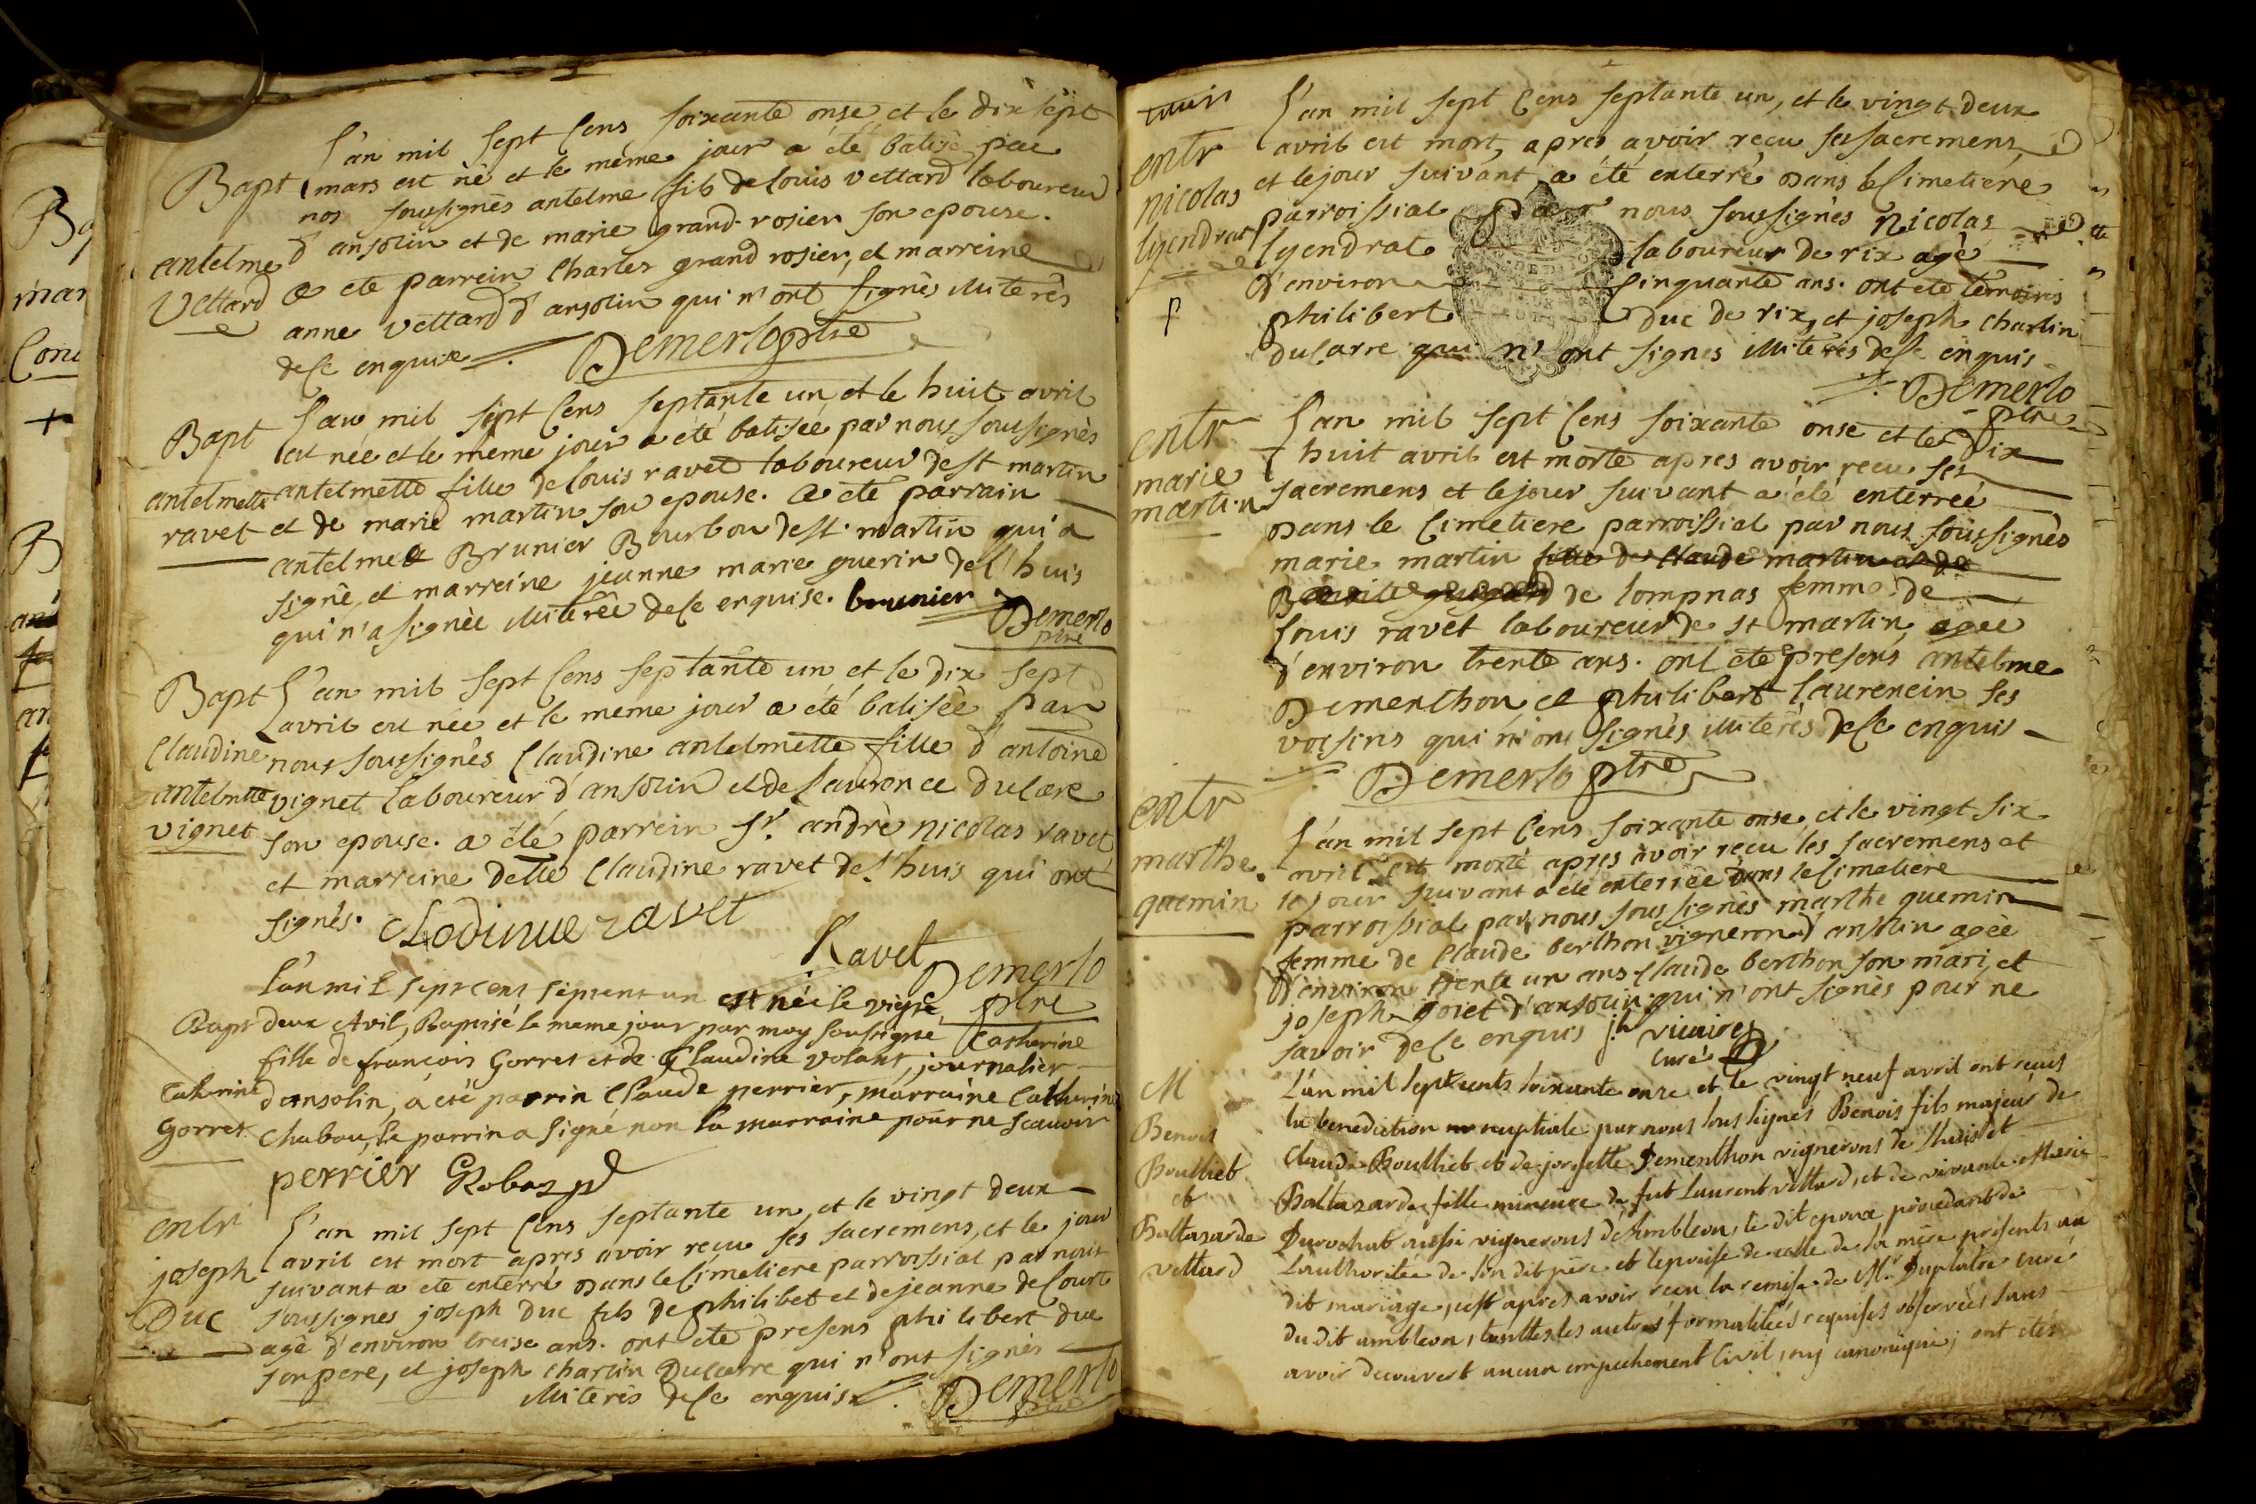 L'an mil sept Cens soixante onse et le dix sept
Bapt mars est né et le même jour a été batisé par
nos soussignès antelme fils de Louis vettard laboureur
antelme d'ansolin et de marie grand-rosier son epouse.
Vettard a ete parrein Charles grand rosier, et marreine
anne vettard d'ansolin qui n'ont signès illiterès
de Ce enquis. Demerlo ptre
L'an mil sept Cens septante un et le huit avril
Bapt est née et le même jour a été batisée par nous soussignès
antelmette antelmette fille de Louis ravet laboureur de st martin
ravet et de marie martin son epouse. a été parrain
antelme Brunier Bourbon de st. martin qui a
signé, et marreine jeanne marie guerin de l'huis
qui n'a signée illiterée de Ce enquise. brunier
Demerlo
ptre
Bapt L'an mil sept Cens septante un et le dix sept
avril est née et le meme jour a été batisée par
Claudine nous soussignès Claudine antelmette fille d'antoine
antelmette vignet laboureur d'ansolin et de Laurence ducarre
vignet son epouse. a été parrein sr. andrè nicolas ravet
et marreine delle Claudine ravet de l'huis qui ont
signès. Clodinne ravet
Ravet
Demerlo
ptre
L'an mil sept cent septent un est née le vigt
Bapt deux Avil, Baptisé le meme jour par moy soussigné Catherine
fille de françois Gorret et de Claudine volant, journalier
Catherine d'ansolin, a été parrin Claude perrier, marraine Catherine
Gorret. Chabou, le parrin a signé non la marraine pour ne scauoir
perrier Robaz
entr L'an mil sept Cens septante un, et le vingt deux
avril est mort apres avoir reçu ses sacremens, et le jour
joseph suivant a ete enterré dans le Cimetiere parroissial par nous
Duc soussignes joseph Duc fils de philibet et de jeanne de Court
agè d'environ treise ans. ont ete presens philibert duc
son pere, et joseph charlin Ducarre qui n'ont signès
illiterès de Ce enquis. Demerlo
ptre
L'an mil sept Cens septante un, et le vingt-deux
entr avril est mort, apres avoir reçu ses sacremens
nicolas et le jour suivant a été enterré dans le Cimetière
lyendrat parroissial par nous soussignès nicolas
lyendrat laboureur de rix agè
d'environ Cinquante ans. ont ete temoins
philibert Duc de rix, et joseph charlin
ducarre qui n'ont signes illiterès de Ce enquis
Demerlo
ptre
entr L'an mil sept Cens soixante onse et le dix
huit avril est morte apres avoir reçu ses
marie
martin sacremens et le jour suivant a été enterrée
dans le Cimetiere parroissial par nous soussignès
marie martin fille de Claude martin et de
de lompnas femme de
Louis ravet laboureur de st martin agée
d'environ trente ans. ont ete presens antelme
Dementhon et philibert Laurencin ses
voisins qui n'ont signès illiterès de Ce enquis
Demerlo ptre
entr L'an mil sept Cens soixante onse et le vingt six
marthe avril est morte apres avoir reçu les sacremens et
le jour suivant a été enterrée dans le Cimetiere
quemin parroissial par nous soussignès marthe quemin
femme de Claude berthon vigneron d'ansolin agèe
d'environ trente un ans Claude berthon son mari, et
joseph goiet d'ansolin qui n'ont signès pour ne
savoir de Ce enquis
curé
M L'an mil sept cents soixante onze et le vingt neuf avril ont reçus
Benois la benediction nuptiale par nous sous signés Benois fils majeur de
Boulliet Claude Boulliet et de jorgette Dementhon vignerons de Lhuis et
et Baltazarde fille mineure de fut Laurent vettard, et de vivante Marie
Baltazarde Durochat aussi vignerons d'Ambleon, le dit epoux procedant de
vettard L'authoritée de son dit père et l'epouse de celle de sa mère présents au
dit mariage, cest apres avoir reçu la remise de Mr. Duplatre curé
du dit ambleon, touttes les autres formalitées requises observées sans
avoir decouvert aucun empechement Civil, ny canonique; ont etés